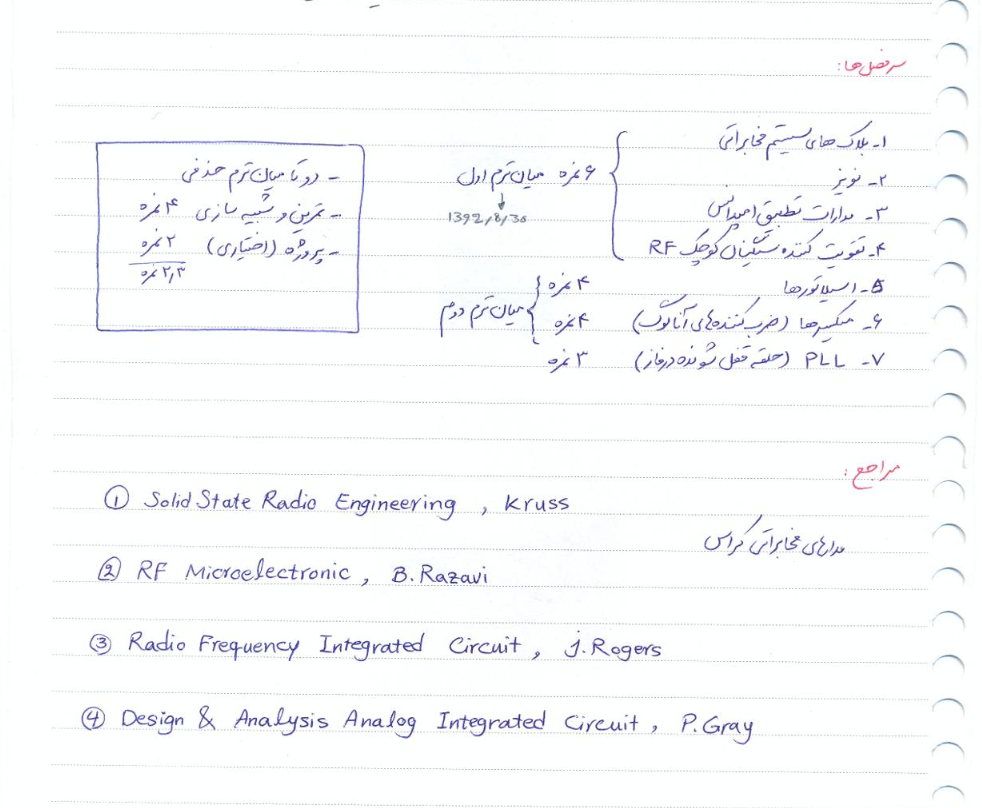 سرفصل‌ها:
۱- بلاک های سیستم مخابراتی
۲- نویز
۳- مدارات تطبیق امپدانس
۴- تقویت کننده سیگنال کوچک RF
۶ نمره میان ترم اول
1392/8/30
۵- اسیلاتورها ۴ نمره
۶- میکسرها (ضرب کننده‌های آنالوگ) ۴ نمره
میان ترم دوم
۷- PLL (حلقه قفل شونده در فاز) ۳ نمره
- دو تا میان ترم حذفی
- تمرین و شبیه سازی ۴ نمره
- پروژه (اختیاری) ۲ نمره
۲٫۳ نمره
مراجع:
① Solid State Radio Engineering , Kruss
مدارهای مخابراتی کراس
② RF Microelectronic , B.Razavi
③ Radio Frequency Integrated Circuit , j.Rogers
④ Design & Analysis Analog Integrated Circuit , P.Gray